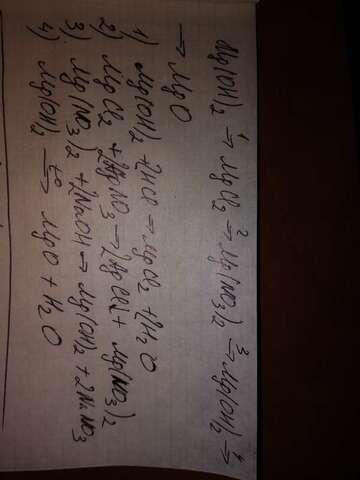 Mg(OH)₂ →¹ MgCl₂ →² Mg(NO₃)₂ →³ Mg(OH)₂ →⁴
→ MgO
1) Mg(OH)₂ + 2HCl → MgCl₂ + 2H₂O
2) MgCl₂ + 2AgNO₃ → 2AgCl↓ + Mg(NO₃)₂
3) Mg(NO₃)₂ + 2NaOH → Mg(OH)₂ + 2NaNO₃
4) Mg(OH)₂ →ᵗ° MgO + H₂O